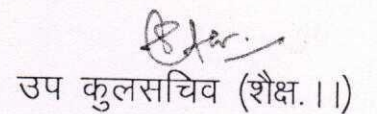 उप कुलसचिव (शैक्ष.।।)